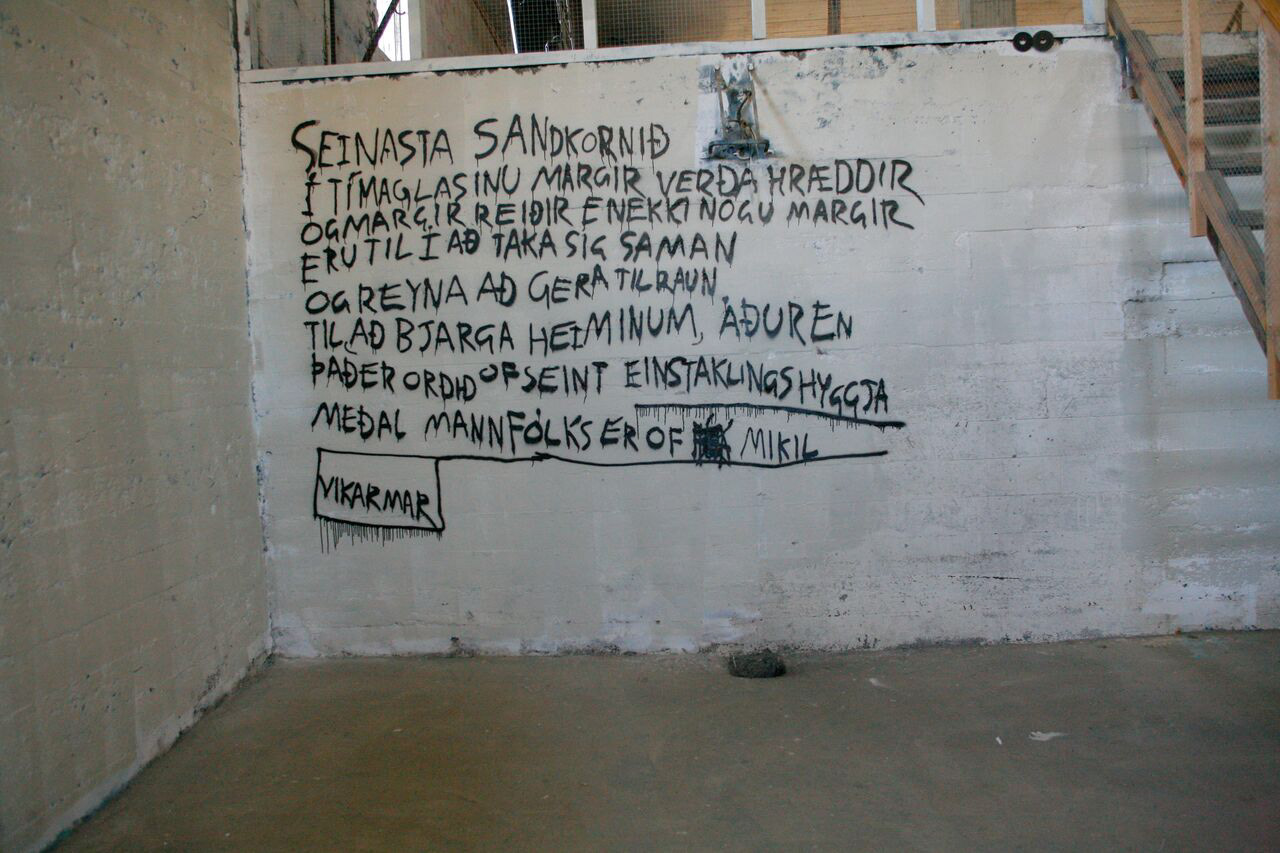 SEINASTA SANDKORNIÐ
Í TÍMAGLASINU MARGIR VERÐA HRÆDDIR
OG MARGIR REIÐIR EN EKKI NÓGU MARGIR
ERU TIL Í AÐ TAKA SIG SAMAN
OG REYNA AÐ GERA TILRAUN
TIL AÐ BJARGA HEIMINUM, ÁÐUR EN
ÞAÐ ER ORÐIÐ OF SEINT EINSTAKLINGSHYGGJA
MEÐAL MANNFÓLKS ER OF MIKIL
VIKAR MAR